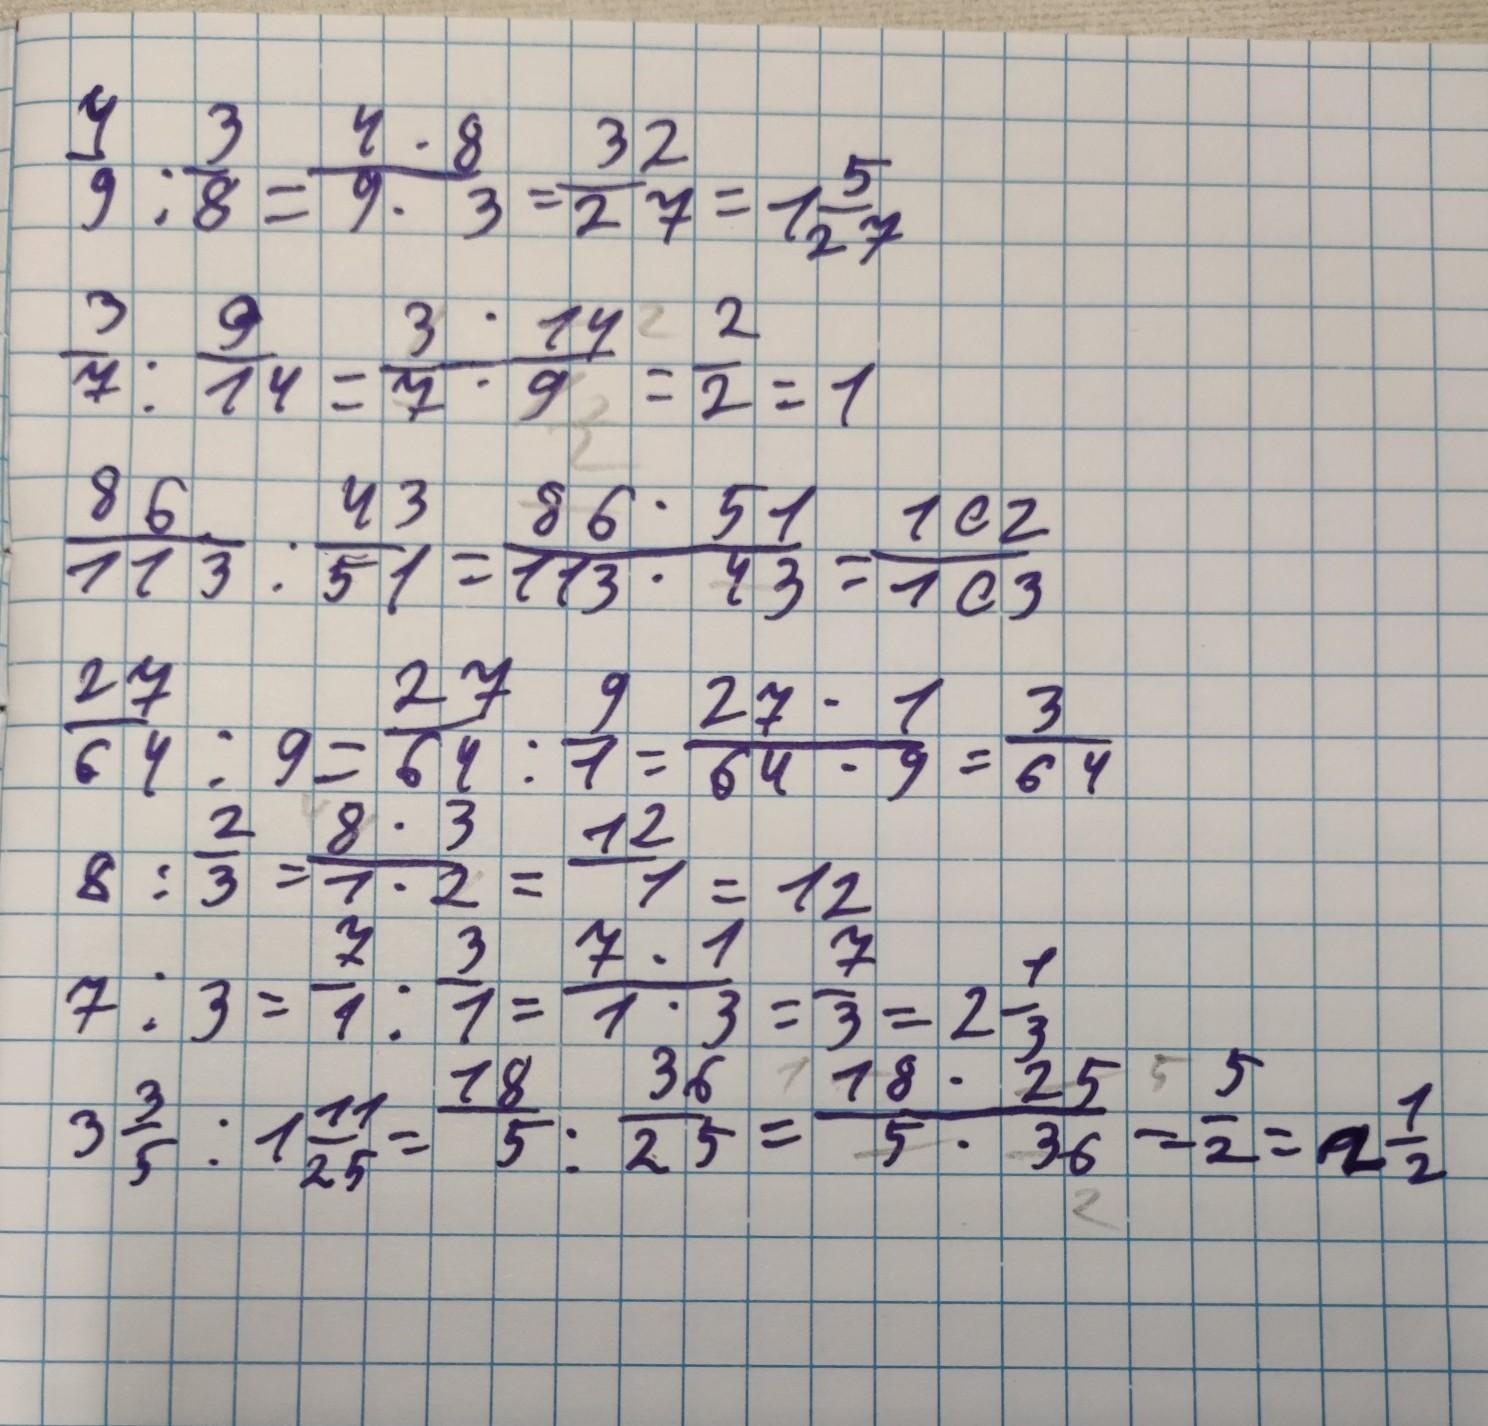 4/9 : 3/8 = 4 · 8 / 9 · 3 = 32/27 = 1 5/27
3/7 : 9/14 = 3 · 14 2 / 7 · 9 3 = 2/2 = 1
86/113 : 43/51 = 86 · 51 / 113 · 43 = 102/103
27/64 : 9 = 27/64 : 9/1 = 27 · 1 / 64 · 9 = 3/64
8 : 2/3 = 8 · 3 / 1 · 2 = 12/1 = 12
7 : 3 = 7/1 : 3/1 = 7 · 1 / 1 · 3 = 7/3 = 2 1/3
3 3/5 : 1 11/25 = 18/5 : 36/25 = 1 18 · 25 5 / 5 · 36 2 = 5/2 = 2 1/2